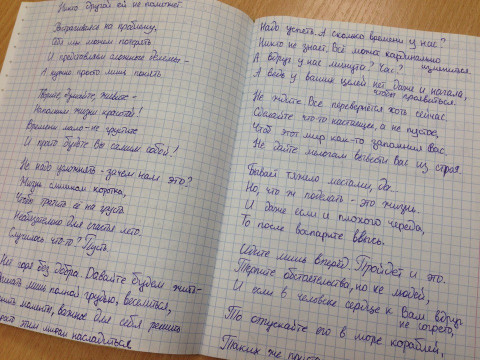 Никто другой ей не поможет.
Растрачиваясь на проблему,
Себя мы можем потерять
И представляем сложные дилеммы –
А нужно просто лишь понять
Творите, думайте, живите –
Наполним жизни красотой!
Времени мало – не грустите
И просто будьте вы самим собой!
Не надо усложнять – зачем нам это?
Жизнь слишком коротка,
Чтобы тратить её на грусть
Необязательно для счастья лето.
Случилось что-то? Пусть.
Нет горя без добра. Давайте будем жить –
Дышать лишь полной грудью, веселиться,
моменты, важное для себя решить
этим миром насладиться.
Надо успеть. А сколько времени у нас?
Никто не знает. Всё может кардинально
измениться.
А вдруг у нас минута? Час?
А ведь у ваших целей нет даже и начала,
чтобы нравиться.
Не ждите. Все перевернётся хоть сейчас.
Сделайте что-то настоящее, а не пустое,
Чтоб этот мир как-то запомнил Вас.
Не дайте мелочам вывести Вас из строя.
Бывает тяжело местами, да...
Но, что ж поделать – это жизнь.
И даже если и плохого череда,
То после воспарите ввысь.
Идите лишь вперёд. Пройдёт и это.
Терпите обстоятельства, но не людей,
И если в человеке сердце к Вам вдруг
не согрето,
То отпускайте его в море кораблей,
Таких же